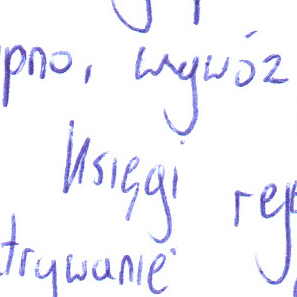 pno, wywóz
Księgi rej
trywanie